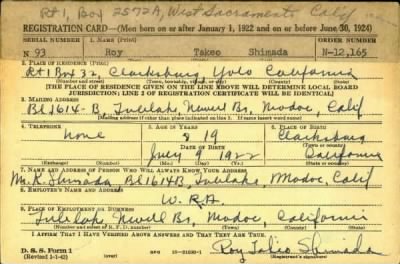 Rt 1, Box 2572A, West Sacramento Calif
REGISTRATION CARD—(Men born on or after January 1, 1922 and on or before June 30, 1924)
SERIAL NUMBER 1. NAME (Print) ORDER NUMBER
N 93 Roy Takeo Shimada N-12,165
2. PLACE OF RESIDENCE (Print)
Rt 1 Box 32, Clarksburg, Yolo California
[THE PLACE OF RESIDENCE GIVEN ON THE LINE ABOVE WILL DETERMINE LOCAL BOARD
JURISDICTION; LINE 2 OF REGISTRATION CERTIFICATE WILL BE IDENTICAL]
3. MAILING ADDRESS
Bl 1614-B, Tulelake, Newell Br, Modoc, Calif
[Mailing address if other than place indicated on line 2. If same insert word same]
4. TELEPHONE 5. AGE IN YEARS 6. PLACE OF BIRTH
none 19 Clarksburg
DATE OF BIRTH
July 8 1922 California
7. NAME AND ADDRESS OF PERSON WHO WILL ALWAYS KNOW YOUR ADDRESS
Mr. K. Shimada Bl 1614B, Tulelake, Modoc, Calif
8. EMPLOYER'S NAME AND ADDRESS
W. R. A.
9. PLACE OF EMPLOYMENT OR BUSINESS
Tulelake, Newell Br, Modoc, California
I AFFIRM THAT I HAVE VERIFIED ABOVE ANSWERS AND THAT THEY ARE TRUE.
D. S. S. Form 1
(Revised 1-1-42) Roy Takeo Shimada
(Registrant's signature)